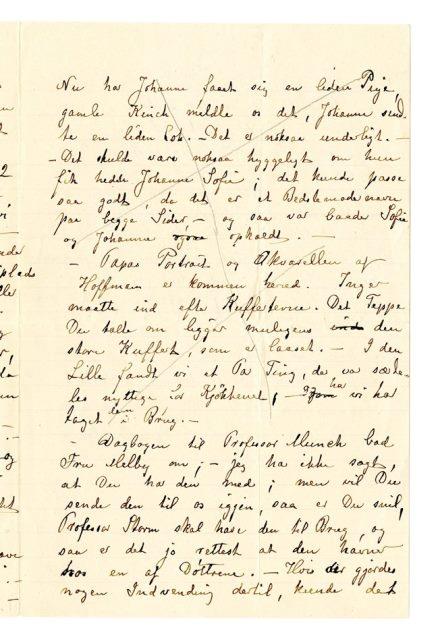 Nu har Johanne faaet sig en liden Pige,
gamle Kinck meldte os det, Johanne send-
te en liden Lok. - Det er noksaa underligt. -
- Det skulde være noksaa hyggeligt om hun
fik hedde Johanne Sofie; det kunde passe
saa godt, da det er et Bedstemodernavn
paa begge Sider - og saa var baade Sofie
og Johanne opkaldt. -
- Papas Portræt og Akvarellen af
Hoffmann er kommen hered. Inger
maatte ind efter Kufferterne. Det Teppe
Du talte om ligger muligens i den
store Kuffert, som er laaset. - I den
Lille fandt vi et Par Ting, der var særde-
les nyttige for Kjøkkenet, har vi har
taget i Brug. -
- Dagbogen til Professor Munch bad
Fru Melby om; - jeg har ikke sagt,
at Du har den med; men vil Du
sende den til os igjen, saa er Du snil,
Professor Storm skal have den til Brug, og
saa er det jo rettest at den havner
hos en af Døttrene. - Hvis der gjordes
nogen Indvending dertil, kunde det